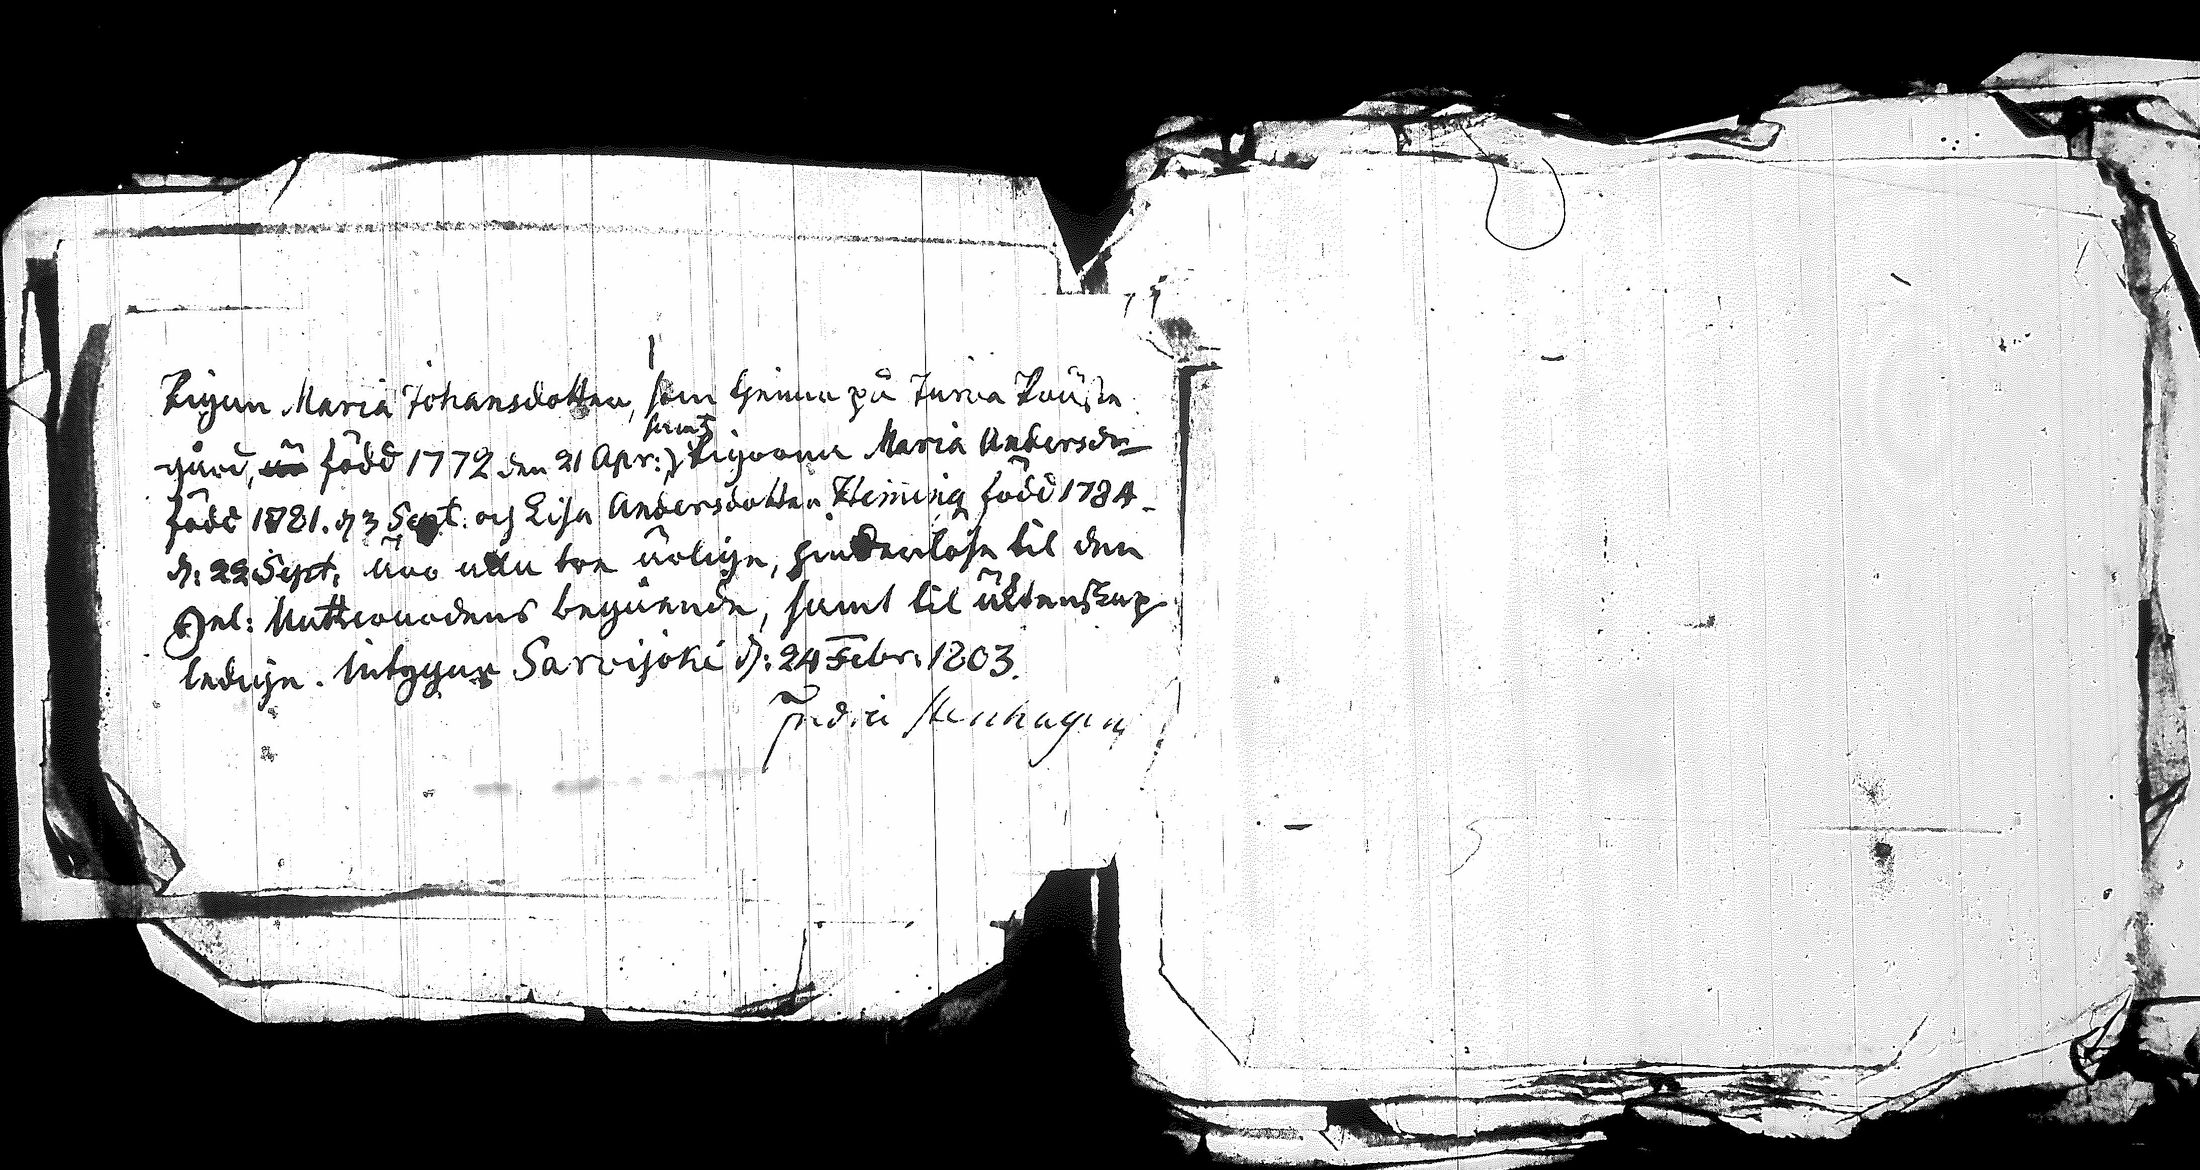 Pigan Maria Johansdotter, som hemma på Turva Rusth
gård, född 1772 den 21 Apr:, samt Pigorna Maria Andersdr
född 1781. d: 3 Sept. och Lisa Andersdotter Heming född 1784
d: 22 Sept. äro alla tre ärliga, hinderlösa til den
Hel: Nattvardens begående, samt til äktenskap
lediga. Intygar Sarvijoki d: 24 Febr: 1803.
Fredric Stenhagen